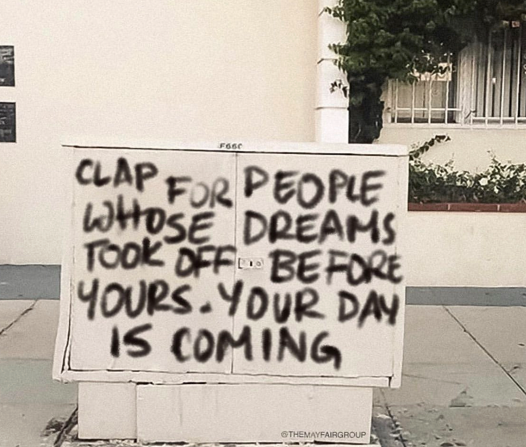 F66C
CLAP FOR PEOPLE
WHOSE DREAMS
TOOK OFF BEFORE
YOURS. YOUR DAY
IS COMING
@THEMAYFAIRGROUP